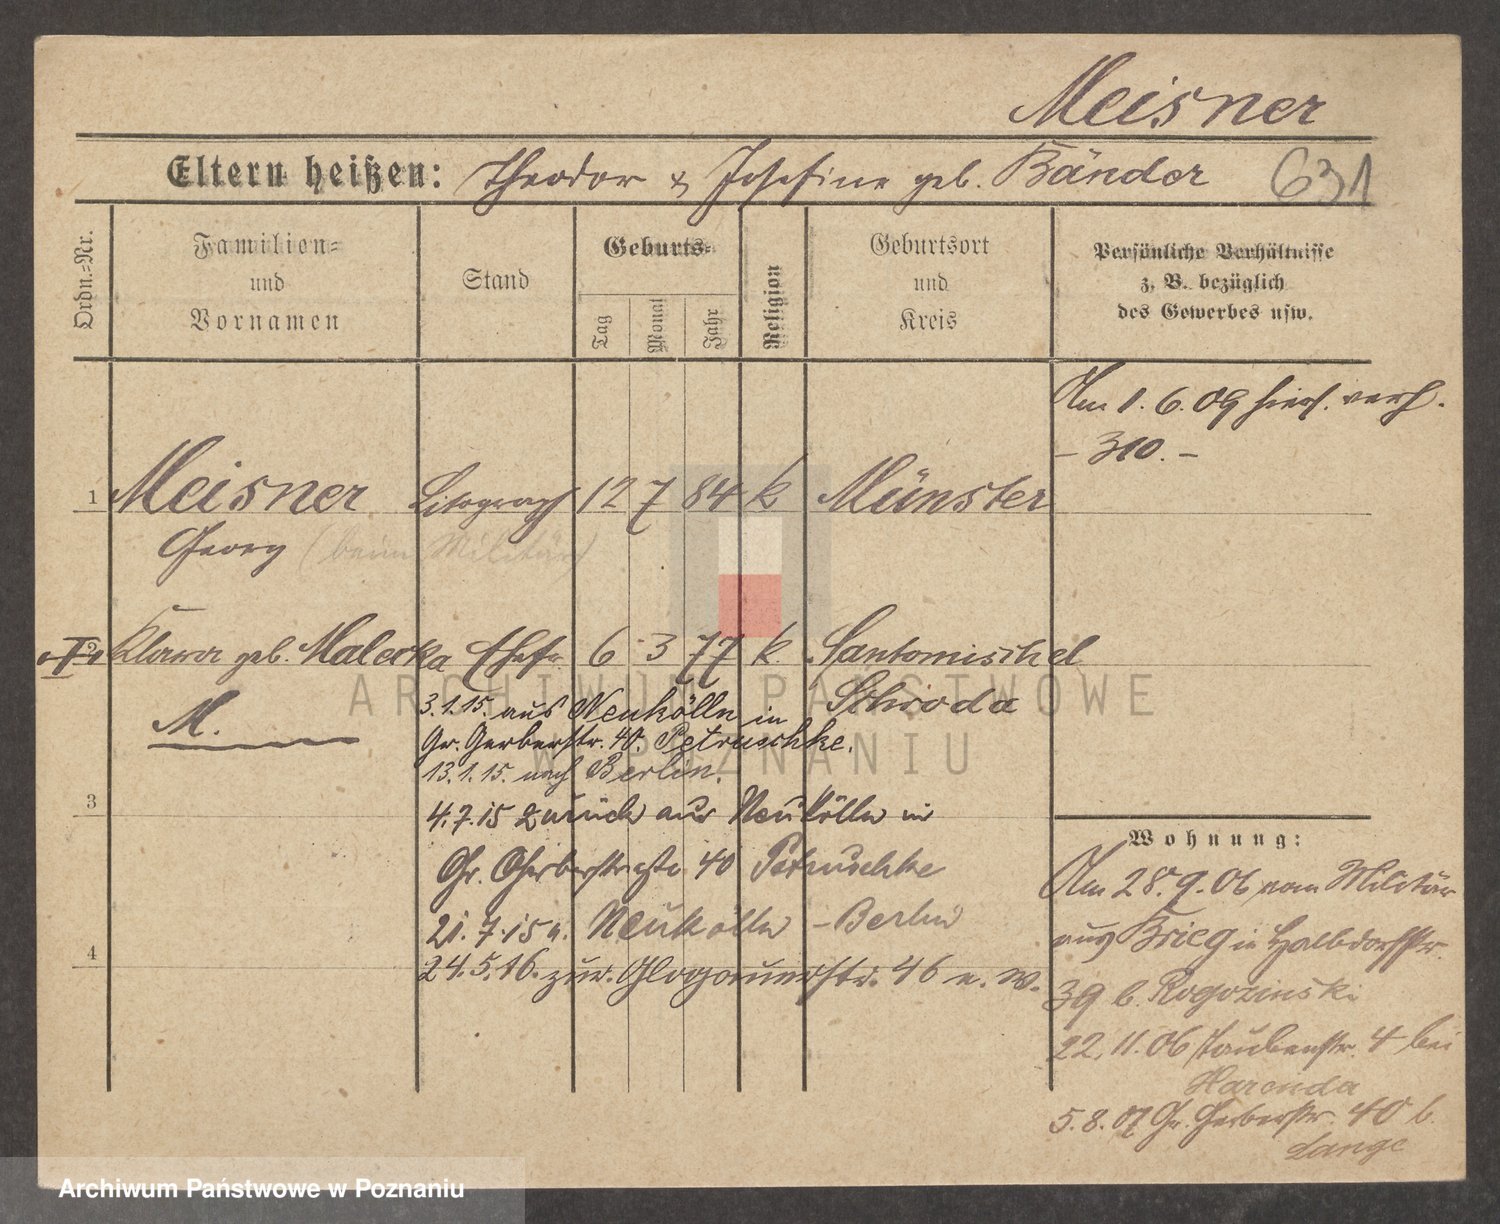 Meisner
Eltern heißen: Theodor & Josefine geb. Bänder 631
Ordn.-Nr.
Familien- und Vornamen
Stand
Geburts-
Tag
Monat
Jahr
Religion
Geburtsort und Kreis
Persönliche Verhältnisse
z. B. bezüglich
des Gewerbes usw.
Am 1. 6. 09 hier verh.
- 310. -
1 Meisner Litograph 12 7 84 k Münster
Georg (beim Militär)
2 Klara geb. Malecka Ehefr. 6 3 77 k. Santomischel
Schroda
M.
3.1.15. aus Neukölln in
Gr. Gerberstr. 40. Petruschke.
13.1.15. nach Berlin.
3
4.7.15 zurück aus Neukölln in
Gr. Gerberstraße 40 Petruschke
21.7.15 n. Neukölln - Berlin
4
24.5.16. zur. Glogauerstr. 46 n. W.
Wohnung:
Am 28.9.06 vom Militär
aus Brieg in Halbdorfstr.
39 b. Rogozinski
22.11.06 Taubenstr. 4 bei
Harenda
5.8.07 Gr. Gerberstr. 40 b.
Lange
ARCHIWUM PAŃSTWOWE
W POZNANIU
Archiwum Państwowe w Poznaniu